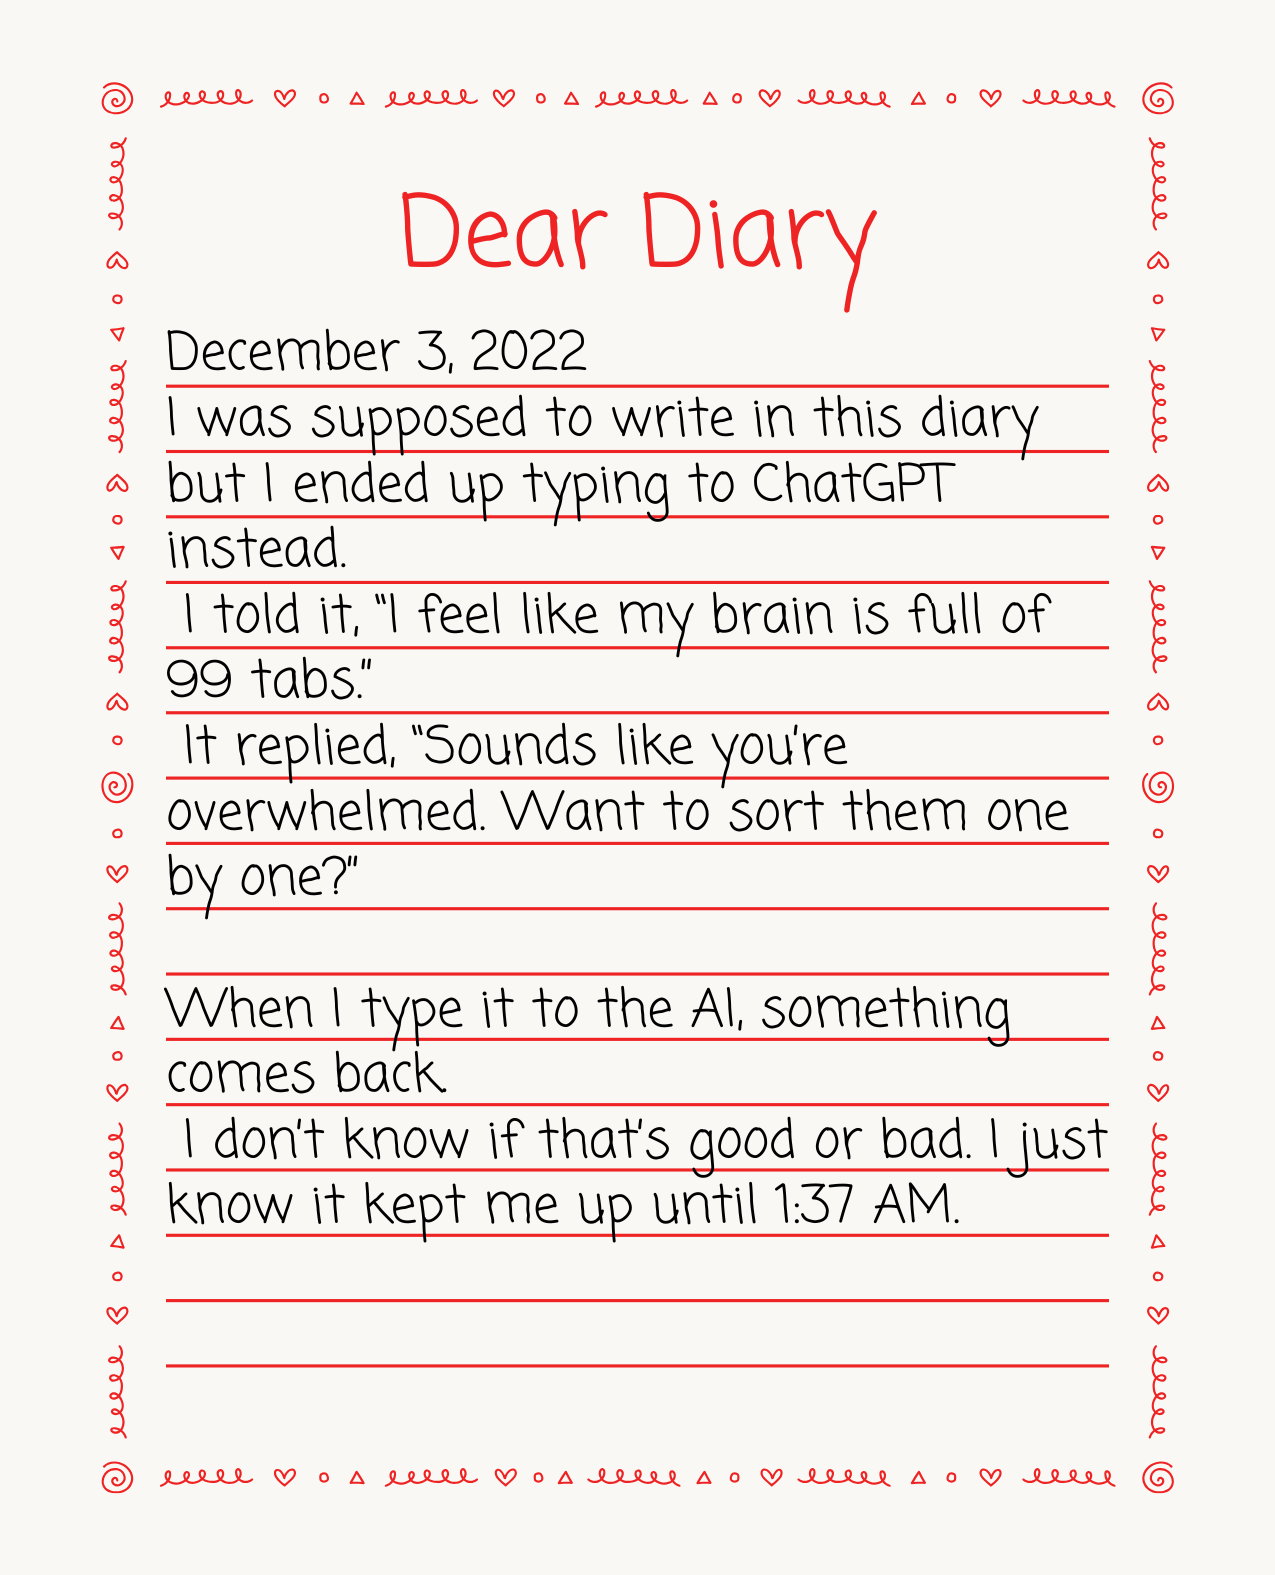 Dear Diary
December 3, 2022
I was supposed to write in this diary
but I ended up typing to ChatGPT
instead.
I told it, "I feel like my brain is full of
99 tabs."
It replied, "Sounds like you're
overwhelmed. Want to sort them one
by one?"
When I type it to the AI, something
comes back.
I don't know if that's good or bad. I just
know it kept me up until 1:37 AM.